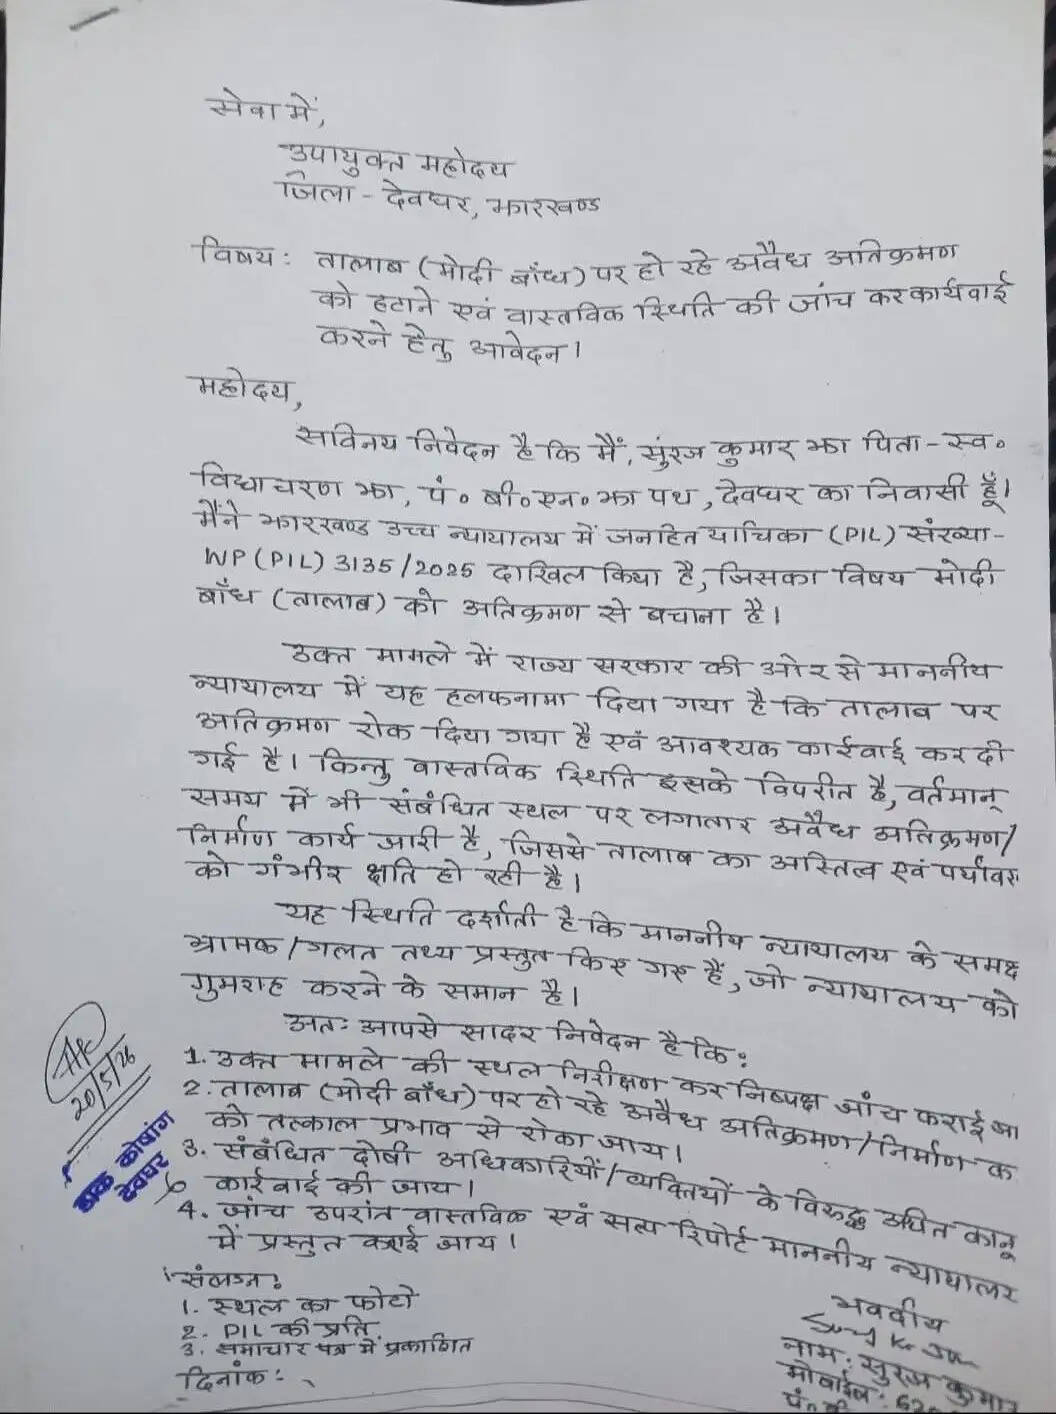 सेवा में,
उपायुक्त महोदय
जिला - देवघर, झारखण्ड
विषय: तालाब (मोदी बाँध) पर हो रहे अवैध अतिक्रमण
को हटाने एवं वास्तविक स्थिति की जांच कर कार्यवाई
करने हेतु आवेदन।
महोदय,
सविनय निवेदन है कि मैं, सुंरज कुमार झा पिता - स्व०
विद्याचरण झा, पं० बी०एन० झा पथ, देवघर का निवासी हूँ।
मैंने झारखण्ड उच्च न्यायालय में जनहित याचिका (PIL) संख्या-
WP (PIL) 3135/2025 दाखिल किया है, जिसका विषय मोदी
बाँध (तालाब) को अतिक्रमण से बचाना है।
उक्त मामले में राज्य सरकार की ओर से माननीय
न्यायालय में यह हलफनामा दिया गया है कि तालाब पर
अतिक्रमण रोक दिया गया है एवं आवश्यक कार्रवाई कर दी
गई है। किन्तु वास्तविक स्थिति इसके विपरीत है, वर्तमान
समय में भी संबंधित स्थल पर लगातार अवैध अतिक्रमण/
निर्माण कार्य जारी है, जिससे तालाब का अस्तित्व एवं पर्यावर
को गंभीर क्षति हो रही है।
यह स्थिति दर्शाती है कि माननीय न्यायालय के समक्ष
भ्रामक/गलत तथ्य प्रस्तुत किए गए हैं, जो न्यायालय को
गुमराह करने के समान है।
अतः आपसे सादर निवेदन है कि:
1. उक्त मामले की स्थल निरीक्षण कर निष्पक्ष जांच कराई जा
2. तालाब (मोदी बाँध) पर हो रहे अवैध अतिक्रमण/निर्माण क
को तत्काल प्रभाव से रोका जाय।
3. संबंधित दोषी अधिकारियों/व्यक्तियों के विरुद्ध उचित कानू
कार्रवाई की जाय।
4. जांच उपरांत वास्तविक एवं सत्य रिपोर्ट माननीय न्यायालर
में प्रस्तुत कराई जाय।
20/5/26
डाक कोषांग
देवघर
संलग्न:
1. स्थल का फोटो
2. PIL की प्रति
3. समाचार पत्र में प्रकाशित
दिनांक:-
भवदीय
नाम: सुरज कुमार
मोबाईल: 620
पं०